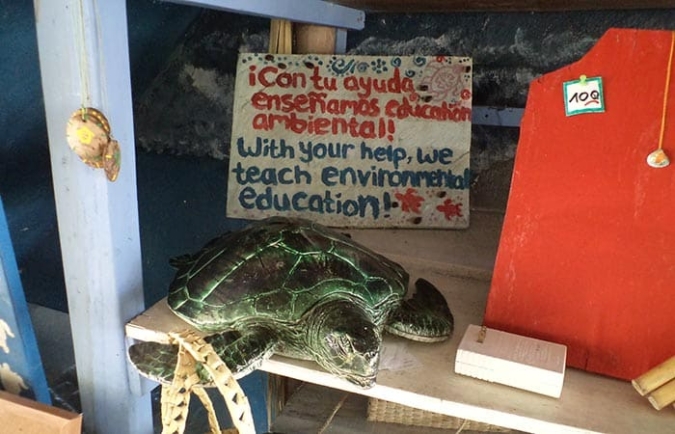 ¡Con tu ayuda
enseñamos educación
ambiental!
With your help, we
teach environmental
education!
100